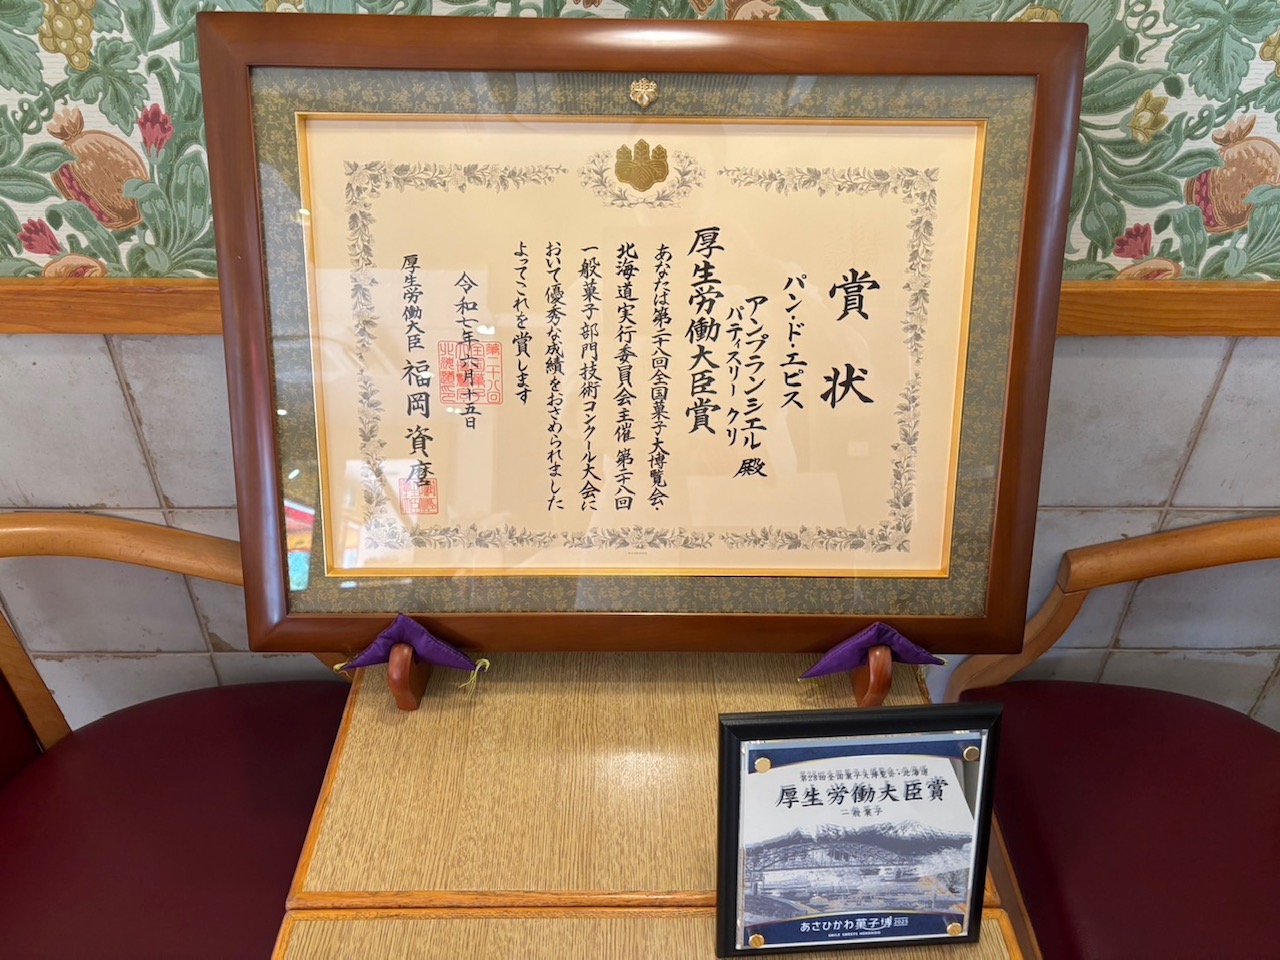 賞状
パン・ド・エピス
アンプランシエル
パティスリー クリ
殿
厚生労働大臣賞
あなたは第二十八回全国菓子大博覧会・
北海道実行委員会主催 第二十八回
一般菓子部門技術コンクール大会に
おいて優秀な成績をおさめられました
よってこれを賞します
令和七年六月十五日
厚生労働大臣 福岡資麿
第28回全国菓子大博覧会・北海道
厚生労働大臣賞
一般菓子
あさひかわ菓子博2025
SMILE SWEETS HOKKAIDO